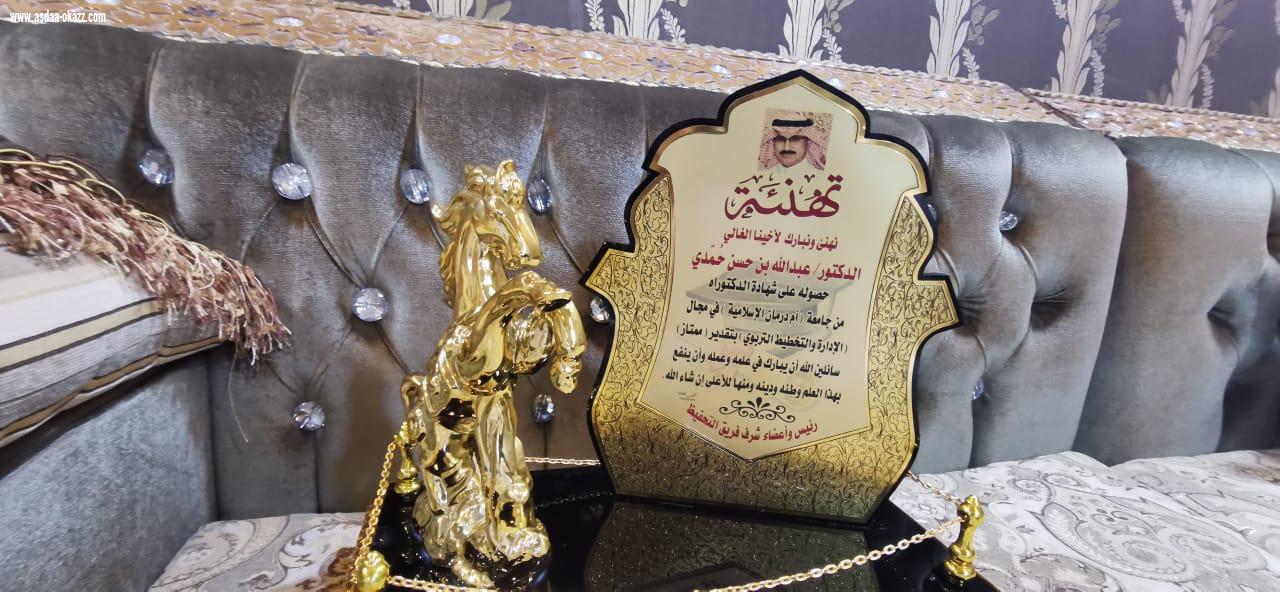 www.asdaa-okazz.com
تهنئة
نهنئ ونبارك لأخينا الغالي
الدكتور/ عبدالله بن حسن حُمّدي
حصوله على شهادة الدكتوراه
من جامعة ( أم درمان الإسلامية ) في مجال
( الإدارة والتخطيط التربوي ) بتقدير ( ممتاز )
سائلين الله أن يبارك في علمه وعمله وأن ينفع
بهذا العلم وطنه ودينه ومنها للأعلى إن شاء الله.
رئيس وأعضاء شرف فريق التحفيظ